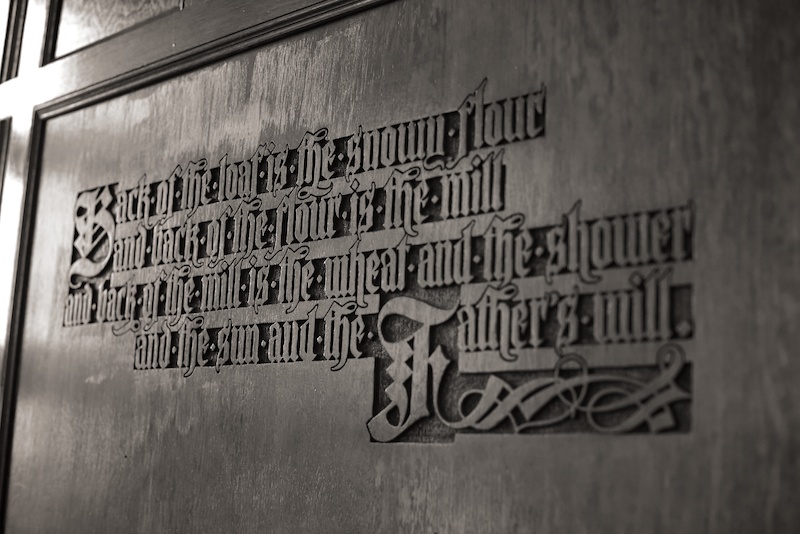 Back of the loaf is the snowy flour
and back of the flour is the mill
and back of the mill is the wheat and the shower
and the sun and the Father's will.